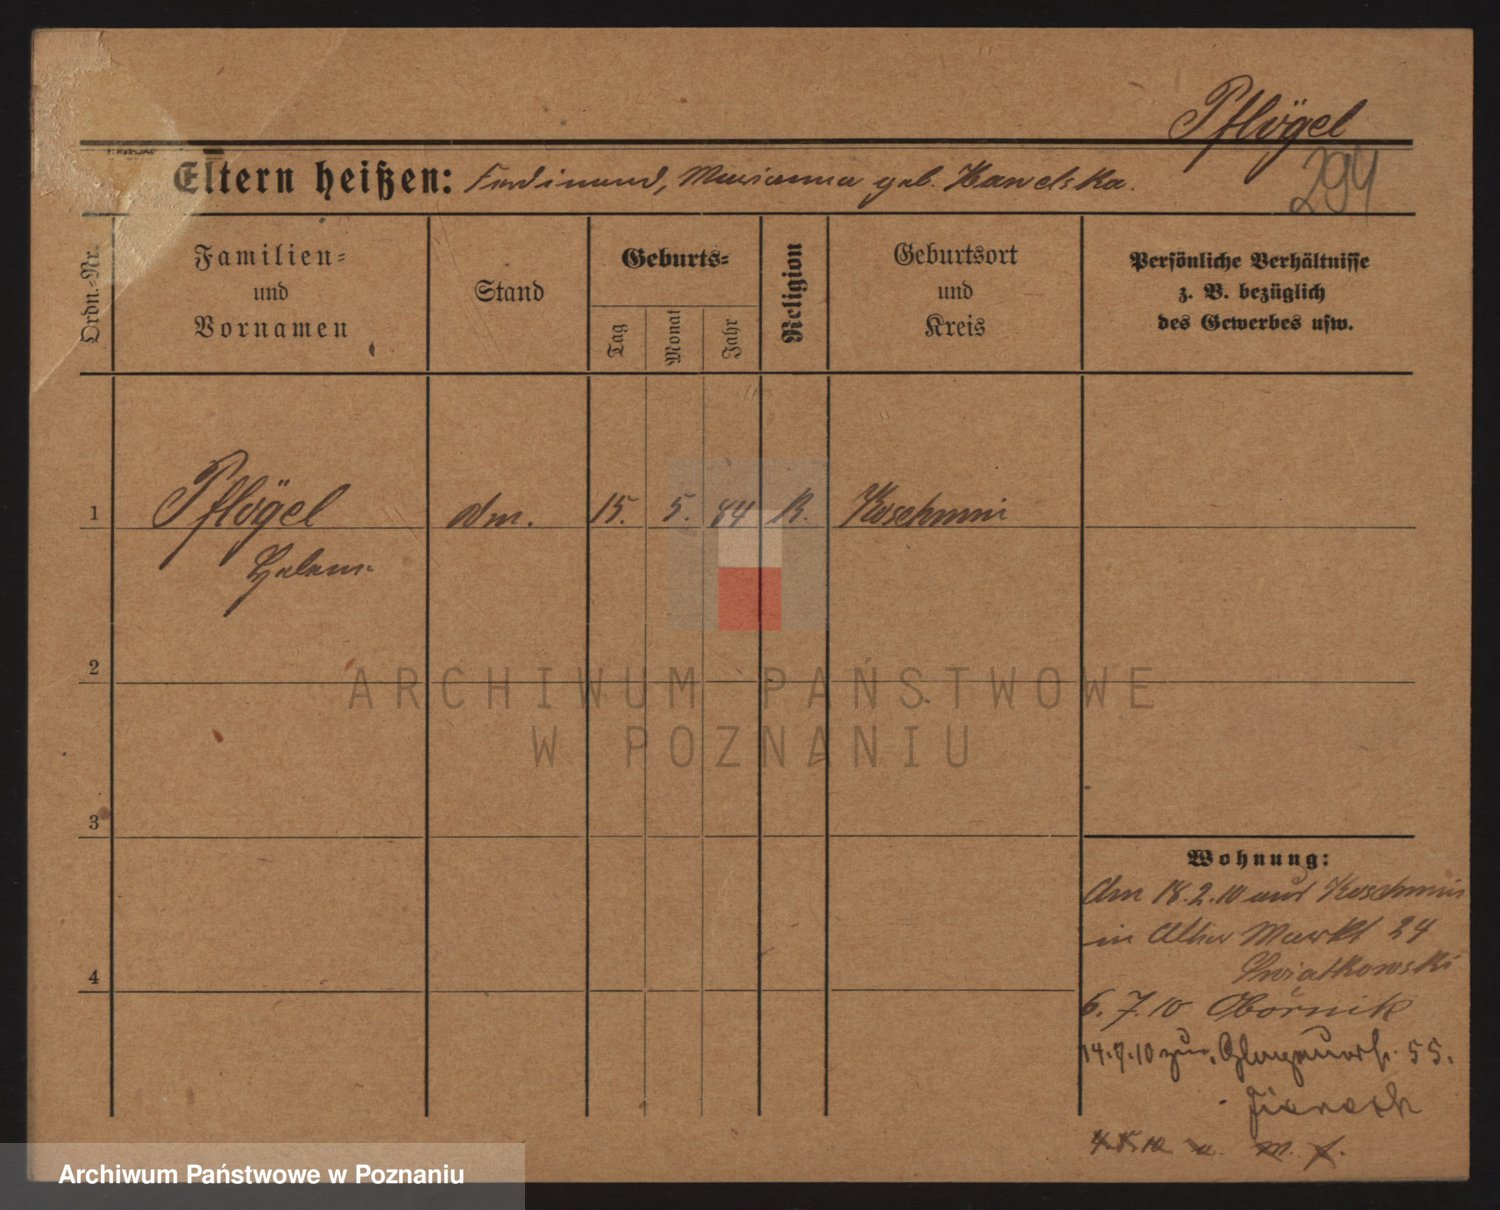 Pflögel
294
Eltern heißen: Ferdinand, Marianna geb. Hawelska.
Ordn.-Nr.
Familien-
und
Vornamen
Stand
Geburts-
Tag
Monat
Jahr
Religion
Geburtsort
und
Kreis
Persönliche Verhältnisse
z. B. bezüglich
des Gewerbes usw.
1 Pflögel dm. 15. 5. 84 K. Koschmin
Helene
2
ARCHIWUM PAŃSTWOWE
W POZNANIU
3
Wohnung:
Am 18.2.10 aus Koschmin
in Alter Markt 24
Swiatkowski
4
6. 7. 10 Obornik
14.7.10 zur. Glogauerstr. 55.
Archiwum Państwowe w Poznaniu